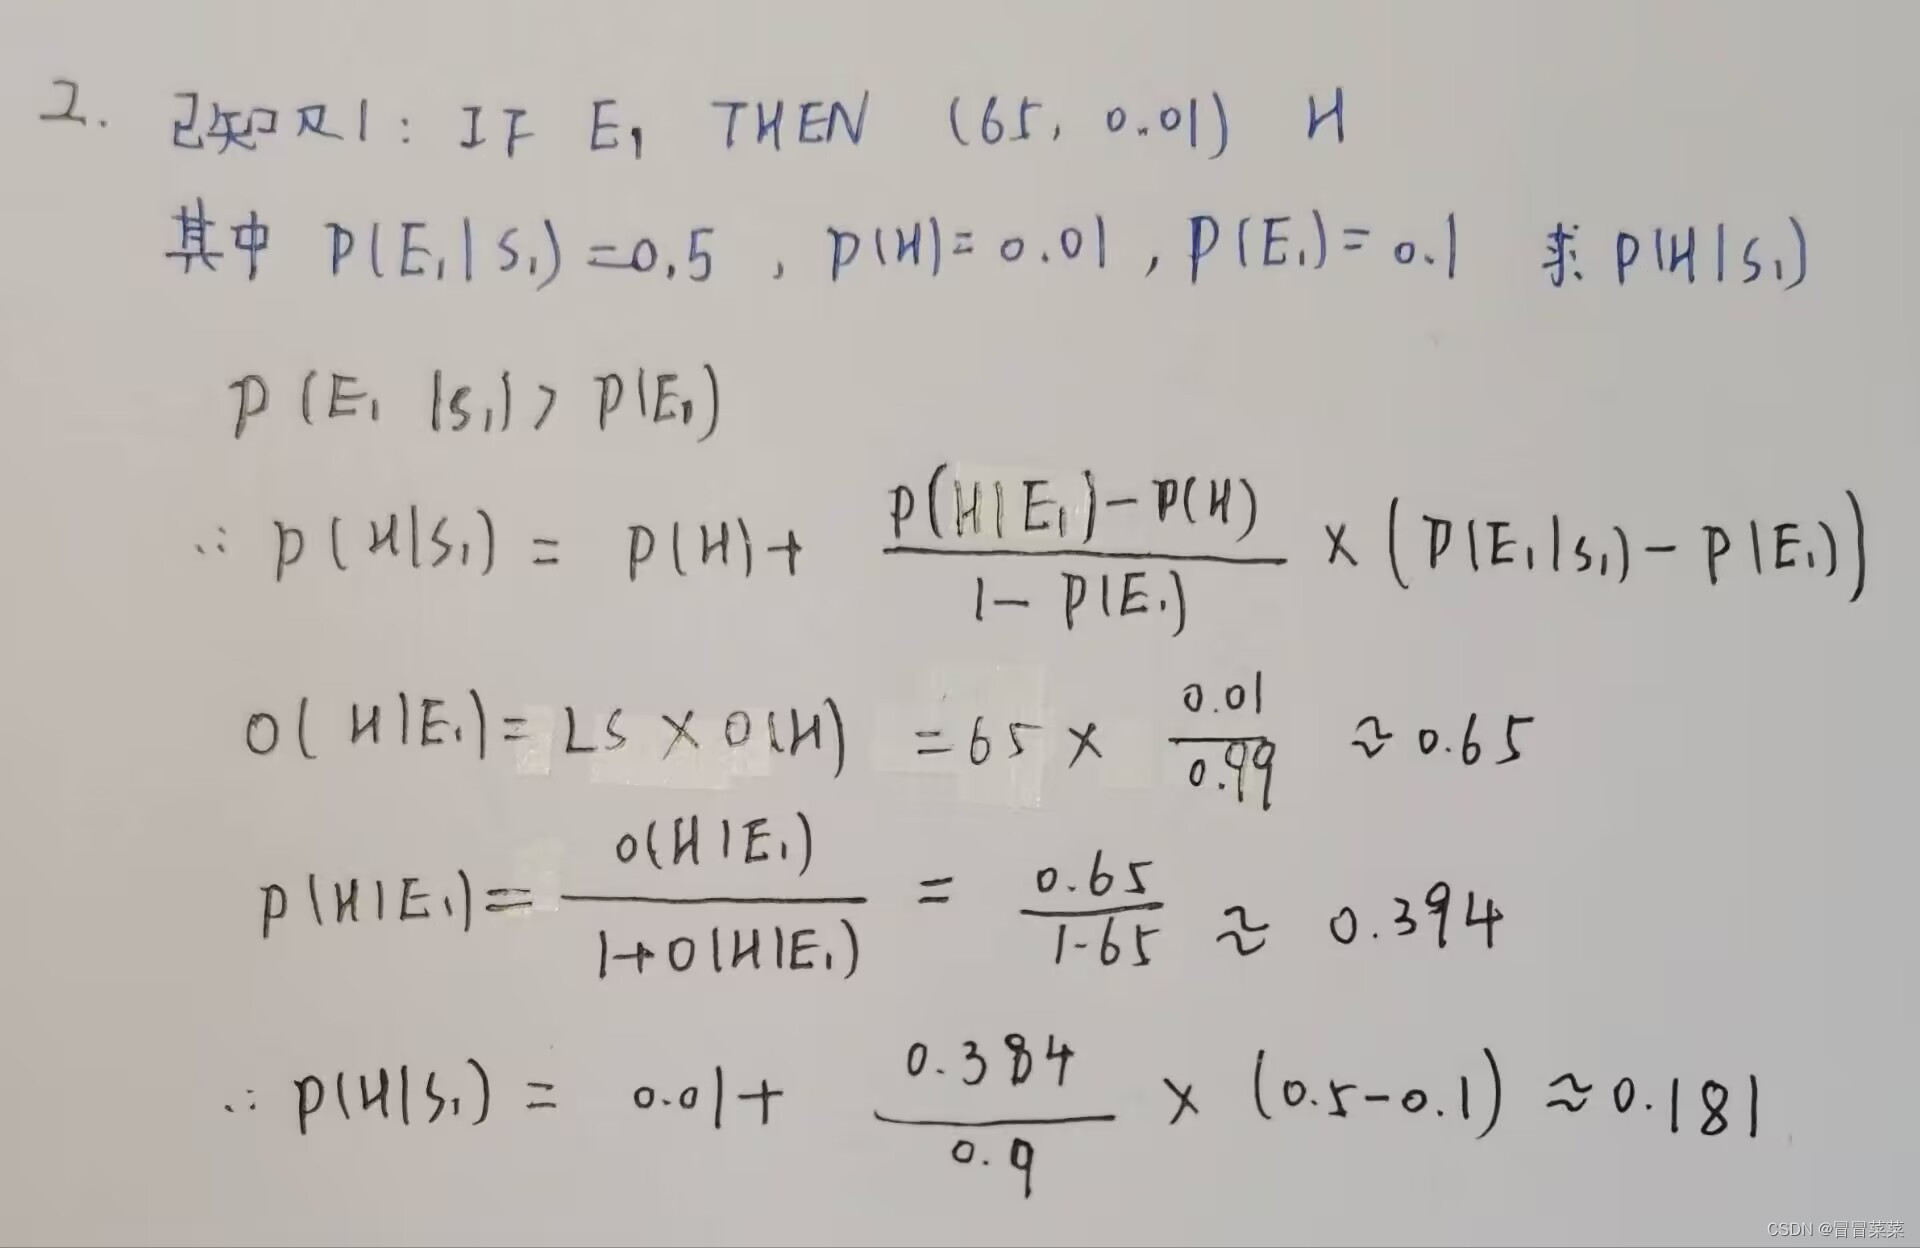 2. 已知R1: IF E₁ THEN (65, 0.01) H
其中 P(E₁|S₁)=0.5, P(H)=0.01, P(E₁)=0.1 求 P(H|S₁)
P(E₁|S₁)>P(E₁)
∴ P(H|S₁) = P(H)+ \frac{P(H|E₁)-P(H)}{1-P(E₁)} × (P(E₁|S₁)-P(E₁))
O(H|E₁)= LS × O(H) = 65 × \frac{0.01}{0.99} ≈ 0.65
P(H|E₁)= \frac{O(H|E₁)}{1+O(H|E₁)} = \frac{0.65}{1.65} ≈ 0.394
∴ P(H|S₁) = 0.01+ \frac{0.384}{0.9} × (0.5-0.1) ≈ 0.181
CSDN @冒冒菜菜